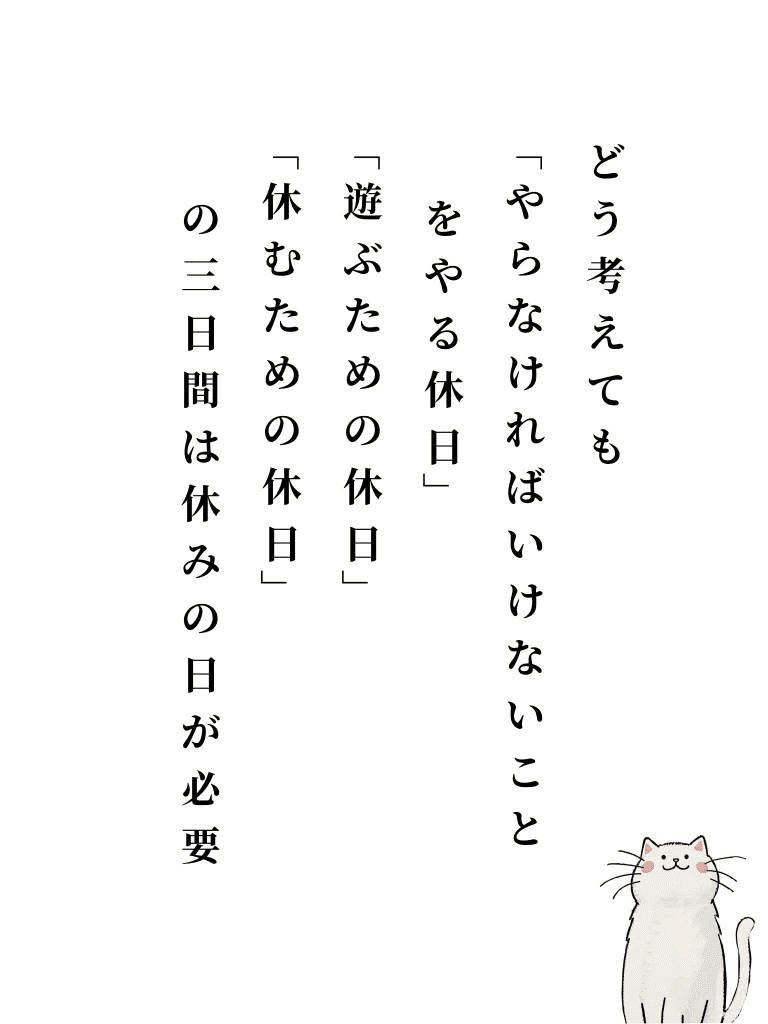 どう考えても
「やらなければいけないこと
をやる休日」
「遊ぶための休日」
「休むための休日」
の三日間は休みの日が必要